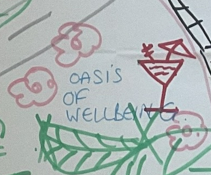 OASIS
OF
WELLBEING